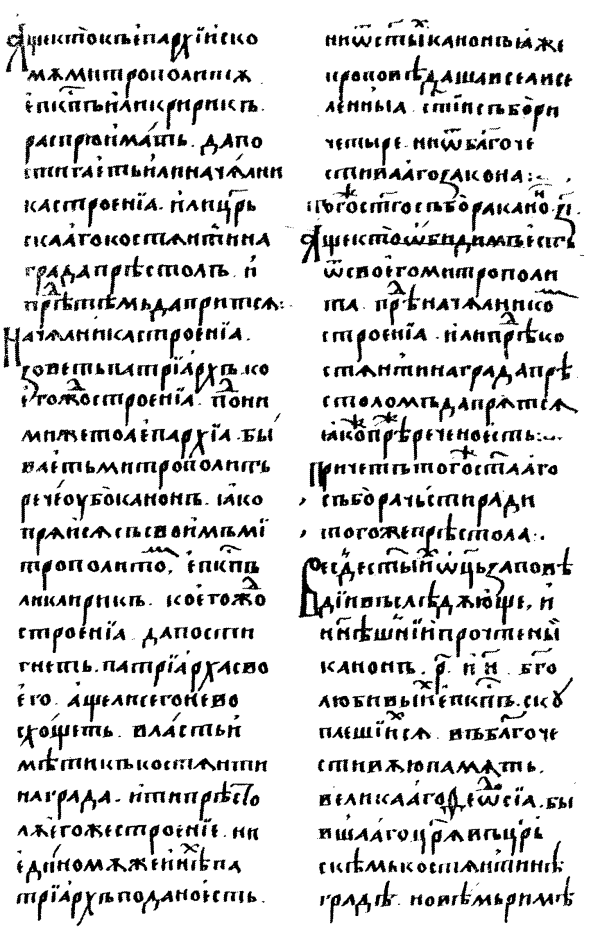 Аще кто къ епархїиско
мѫ митрополитѫ
епкпъ или клирикъ.
распрю имать. да по
стигаеть или начални
ка строенїа. или црь
скааго костѧнтина
града прѣстолъ. и
прѣ тѣмь да притсѧ:
Началника строенїа.
зоветь патрїархъ. ко
егожо строенїа. по ни
миже тоа епархїа бы
ваеть митрополить
рече оубо канонъ. ꙗко
прѧисѧ съ своимъ мі
трополито, епкпъ
ли клирикъ. коегожо
строенїа. да пости
гнеть. патрїарха сво
его. аще ли сего не во
схощеть. власть и
мѣти къ костѧнти
награда. ити прѣсто
лѫ егоже строенїе. ни
единомѫ же и ннѣ па
трїархѫ подано есть.
ни ѿ стыⷯ канонъ ꙗже
проповѣдаша и вселе
ленныа. стїи събори
четыре. ни ѿ багоче
стивааго закона:
Того стго събора кано. зі.
Аще кто обидимъ есть
ѿ своего митрополи
та. прѣ началнико
строенїа. или прѣ ко
стѧнтинаграда прѣ
столомъ да прѧтсѧ
ꙗкоⷤ прѣречено есть:
Причетъ тогоⷤ стааго
събора чьсти ради
тогоже прѣстола:
Вседе стыⷯ оць заповѣ
ди въслѣдѫюще, и
ннѣшнїи прочтены
канонъ. р. и н. бго
любивыⷯ епкпъ. скѹ
плешиⷯсѧ. въ блгоче
стивѫю памѧть.
великааго Феѡсїа. бы
вшааго црѧ въ црь
скѣмь костѧнтинѣ
градѣ. новѣмь римѣ